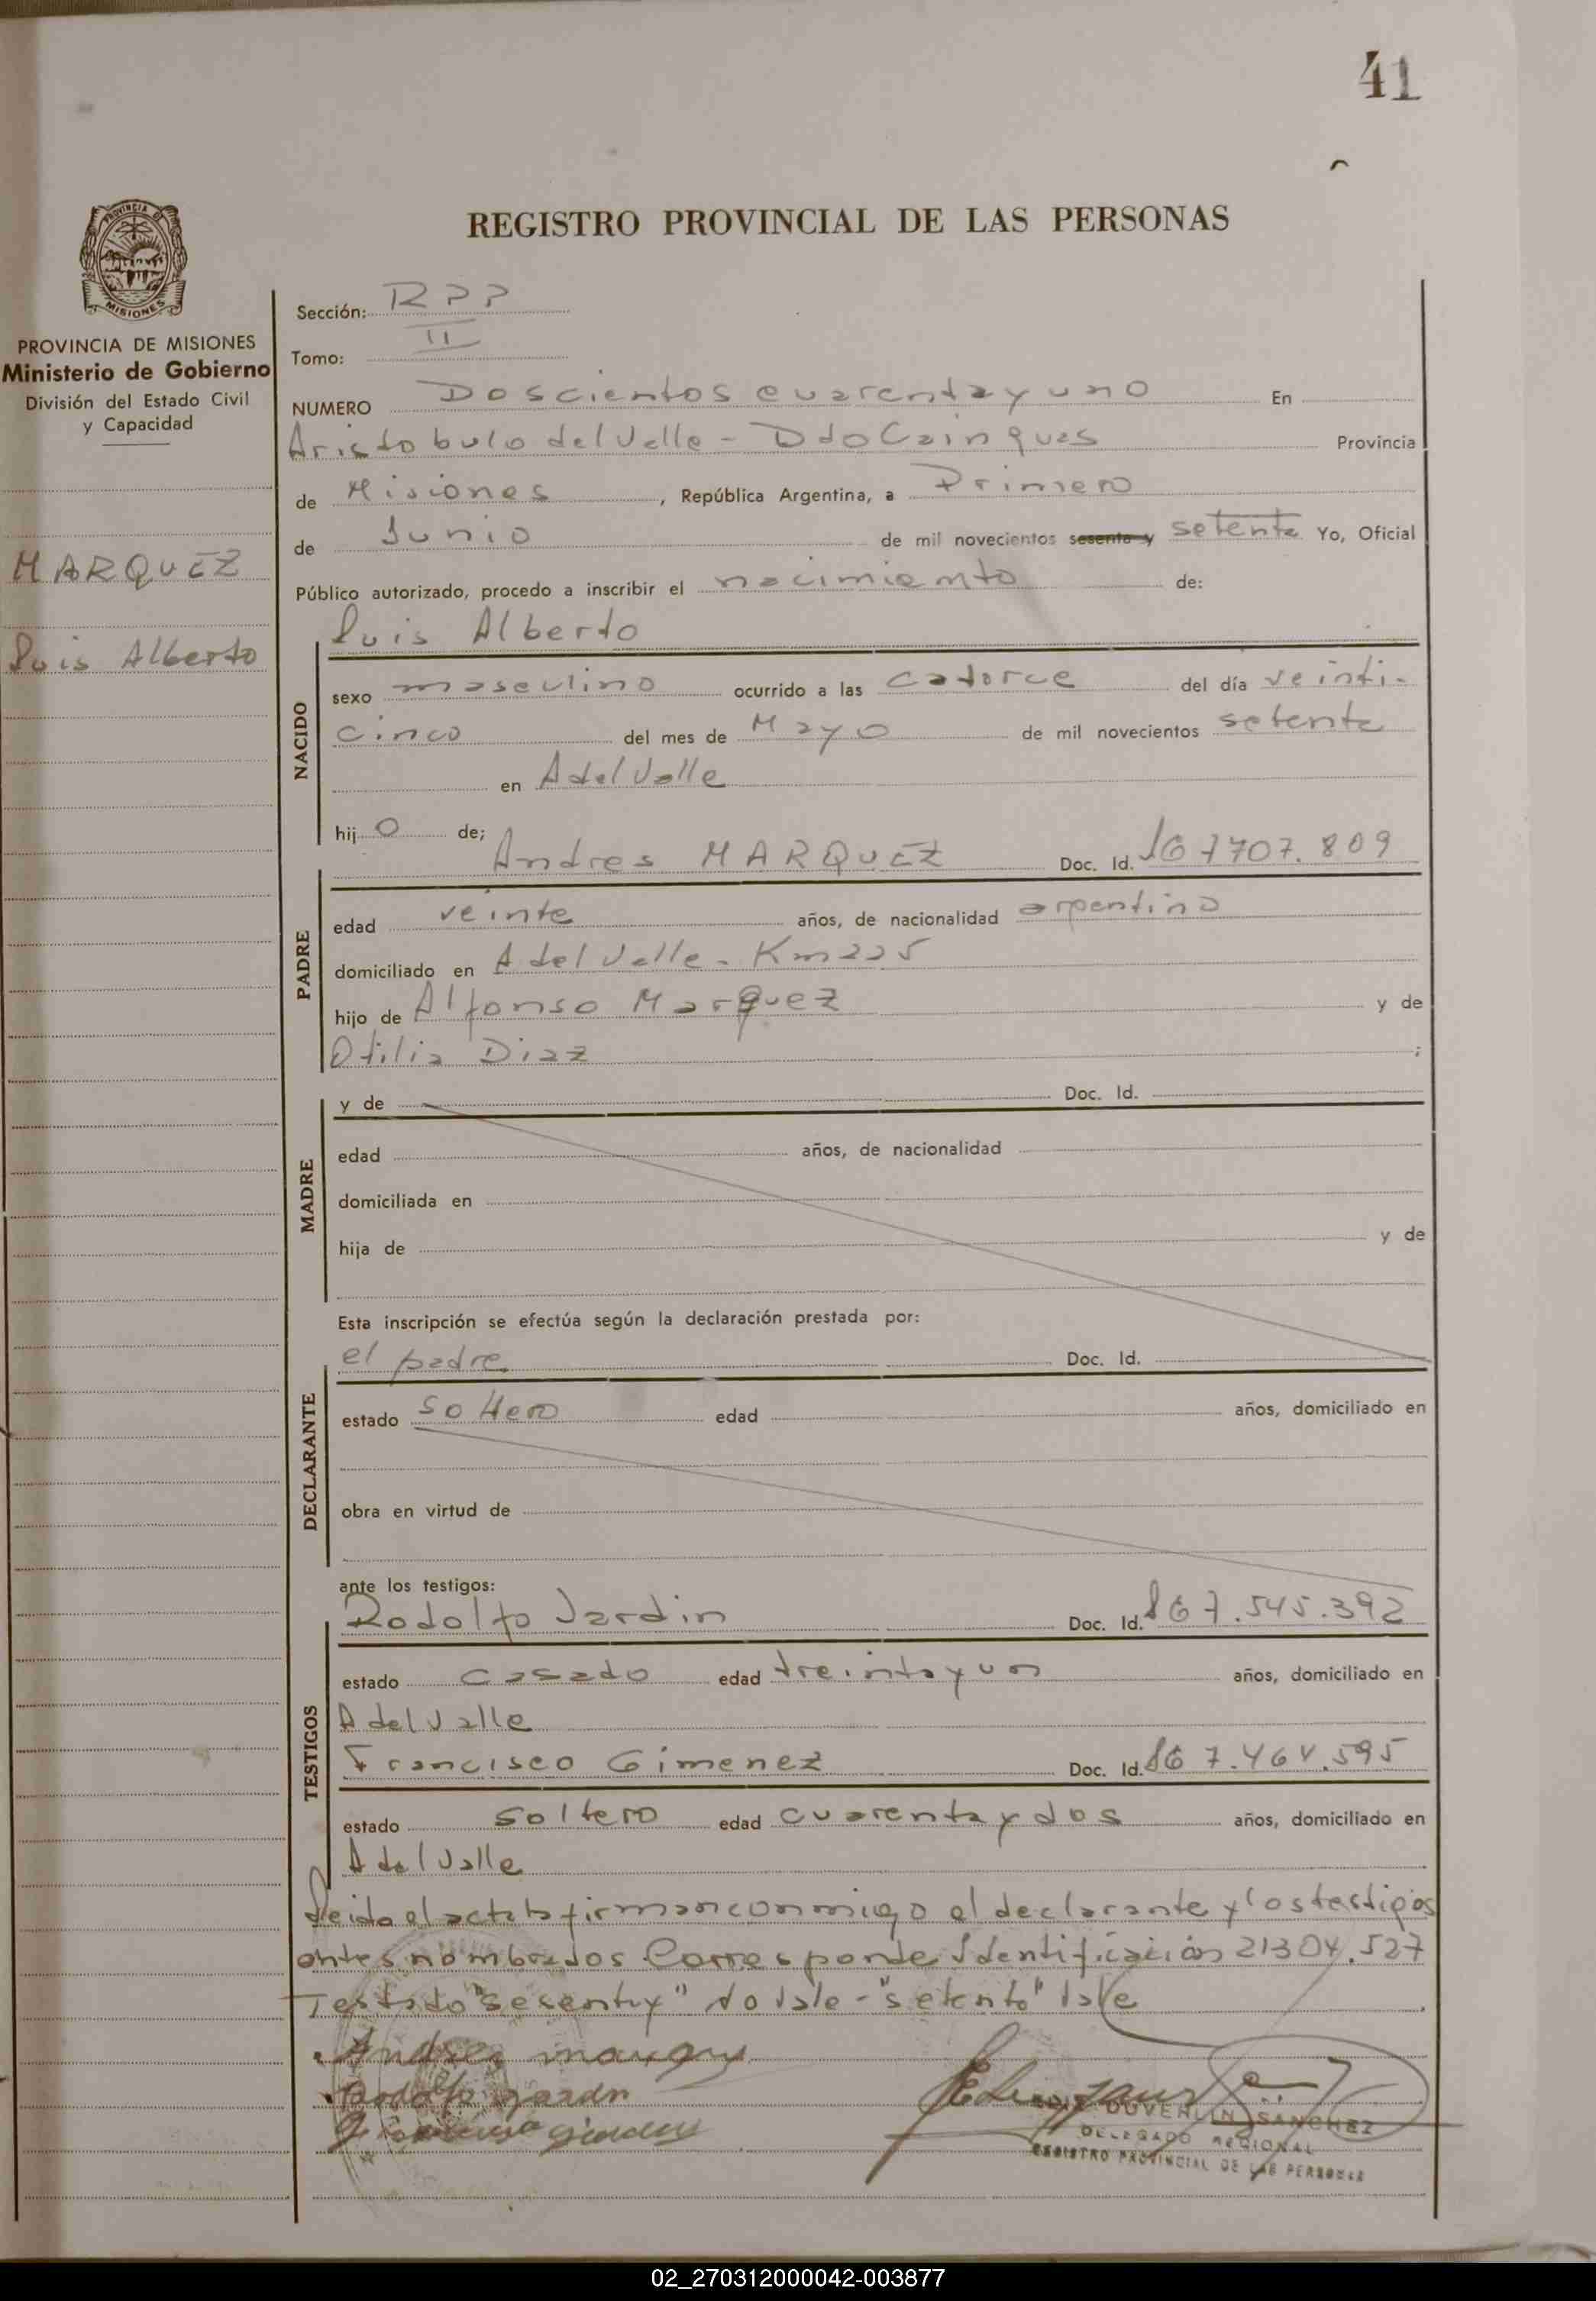 41
REGISTRO PROVINCIAL DE LAS PERSONAS
PROVINCIA DE MISIONES
Ministerio de Gobierno
División del Estado Civil
y Capacidad
MARQUEZ
Luis Alberto
Sección: RPP
Tomo: II
NUMERO Doscientos cuarenta y uno En
Aristobulo del Valle - Ddo Cainguas Provincia
de Misiones, República Argentina, a Primero
de Junio de mil novecientos sesenta y setenta Yo, Oficial
Público autorizado, procedo a inscribir el nacimiento de:
Luis Alberto
NACIDO
sexo masculino ocurrido a las catorce del día veinti-
cinco del mes de Mayo de mil novecientos setenta
en A del Valle
hijo de;
Andres MARQUEZ Doc. Id. 7707.809
PADRE
edad veinte años, de nacionalidad argentino
domiciliado en A del Valle - Km 225
hijo de Alfonso Marquez y de
Otilia Diaz ;
MADRE
y de Doc. Id.
edad años, de nacionalidad
domiciliada en
hija de y de
Esta inscripción se efectúa según la declaración prestada por:
el padre Doc. Id.
DECLARANTE
estado soltero edad años, domiciliado en
obra en virtud de
ante los testigos:
TESTIGOS
Rodolfo Jardin Doc. Id. 7.545.392
estado casado edad treinta y un años, domiciliado en
A del Valle
Francisco Gimenez Doc. Id. 7.464.595
estado soltero edad cuarenta y dos años, domiciliado en
A del Valle
Leida el acta la firman conmigo el declarante y los testigos
antes nombrados Corresponde Identificación 21304.527
Testado "sesenta y" no vale - "setenta" vale
Andres
Rodolfo Jardin
DUVERLIN SANCHEZ
DELEGADO REGIONAL
REGISTRO PROVINCIAL DE LAS PERSONAS
02_270312000042-003877